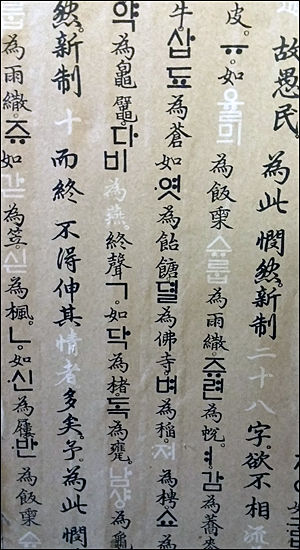 故愚民。為此憫然。新制二十八字欲不相流
皮。ㅠ。如율믜為飯㮚슈룹為雨繖。쥬련為帨。ㅕ。감為蕎麥
牛삽됴為蒼如엿為飴餹뎔為佛寺。벼為稲。져為㯕쇼為
약為鼅鼊。다비為燕。終聲ㄱ。如닥為楮。독為甕。남샹為龜
然。新制十而終不得伸其情者多矣。予為此憫
為雨繖。쥬如갇為笠。신為楓。ㄴ。如신為屨반為飯㮚슈